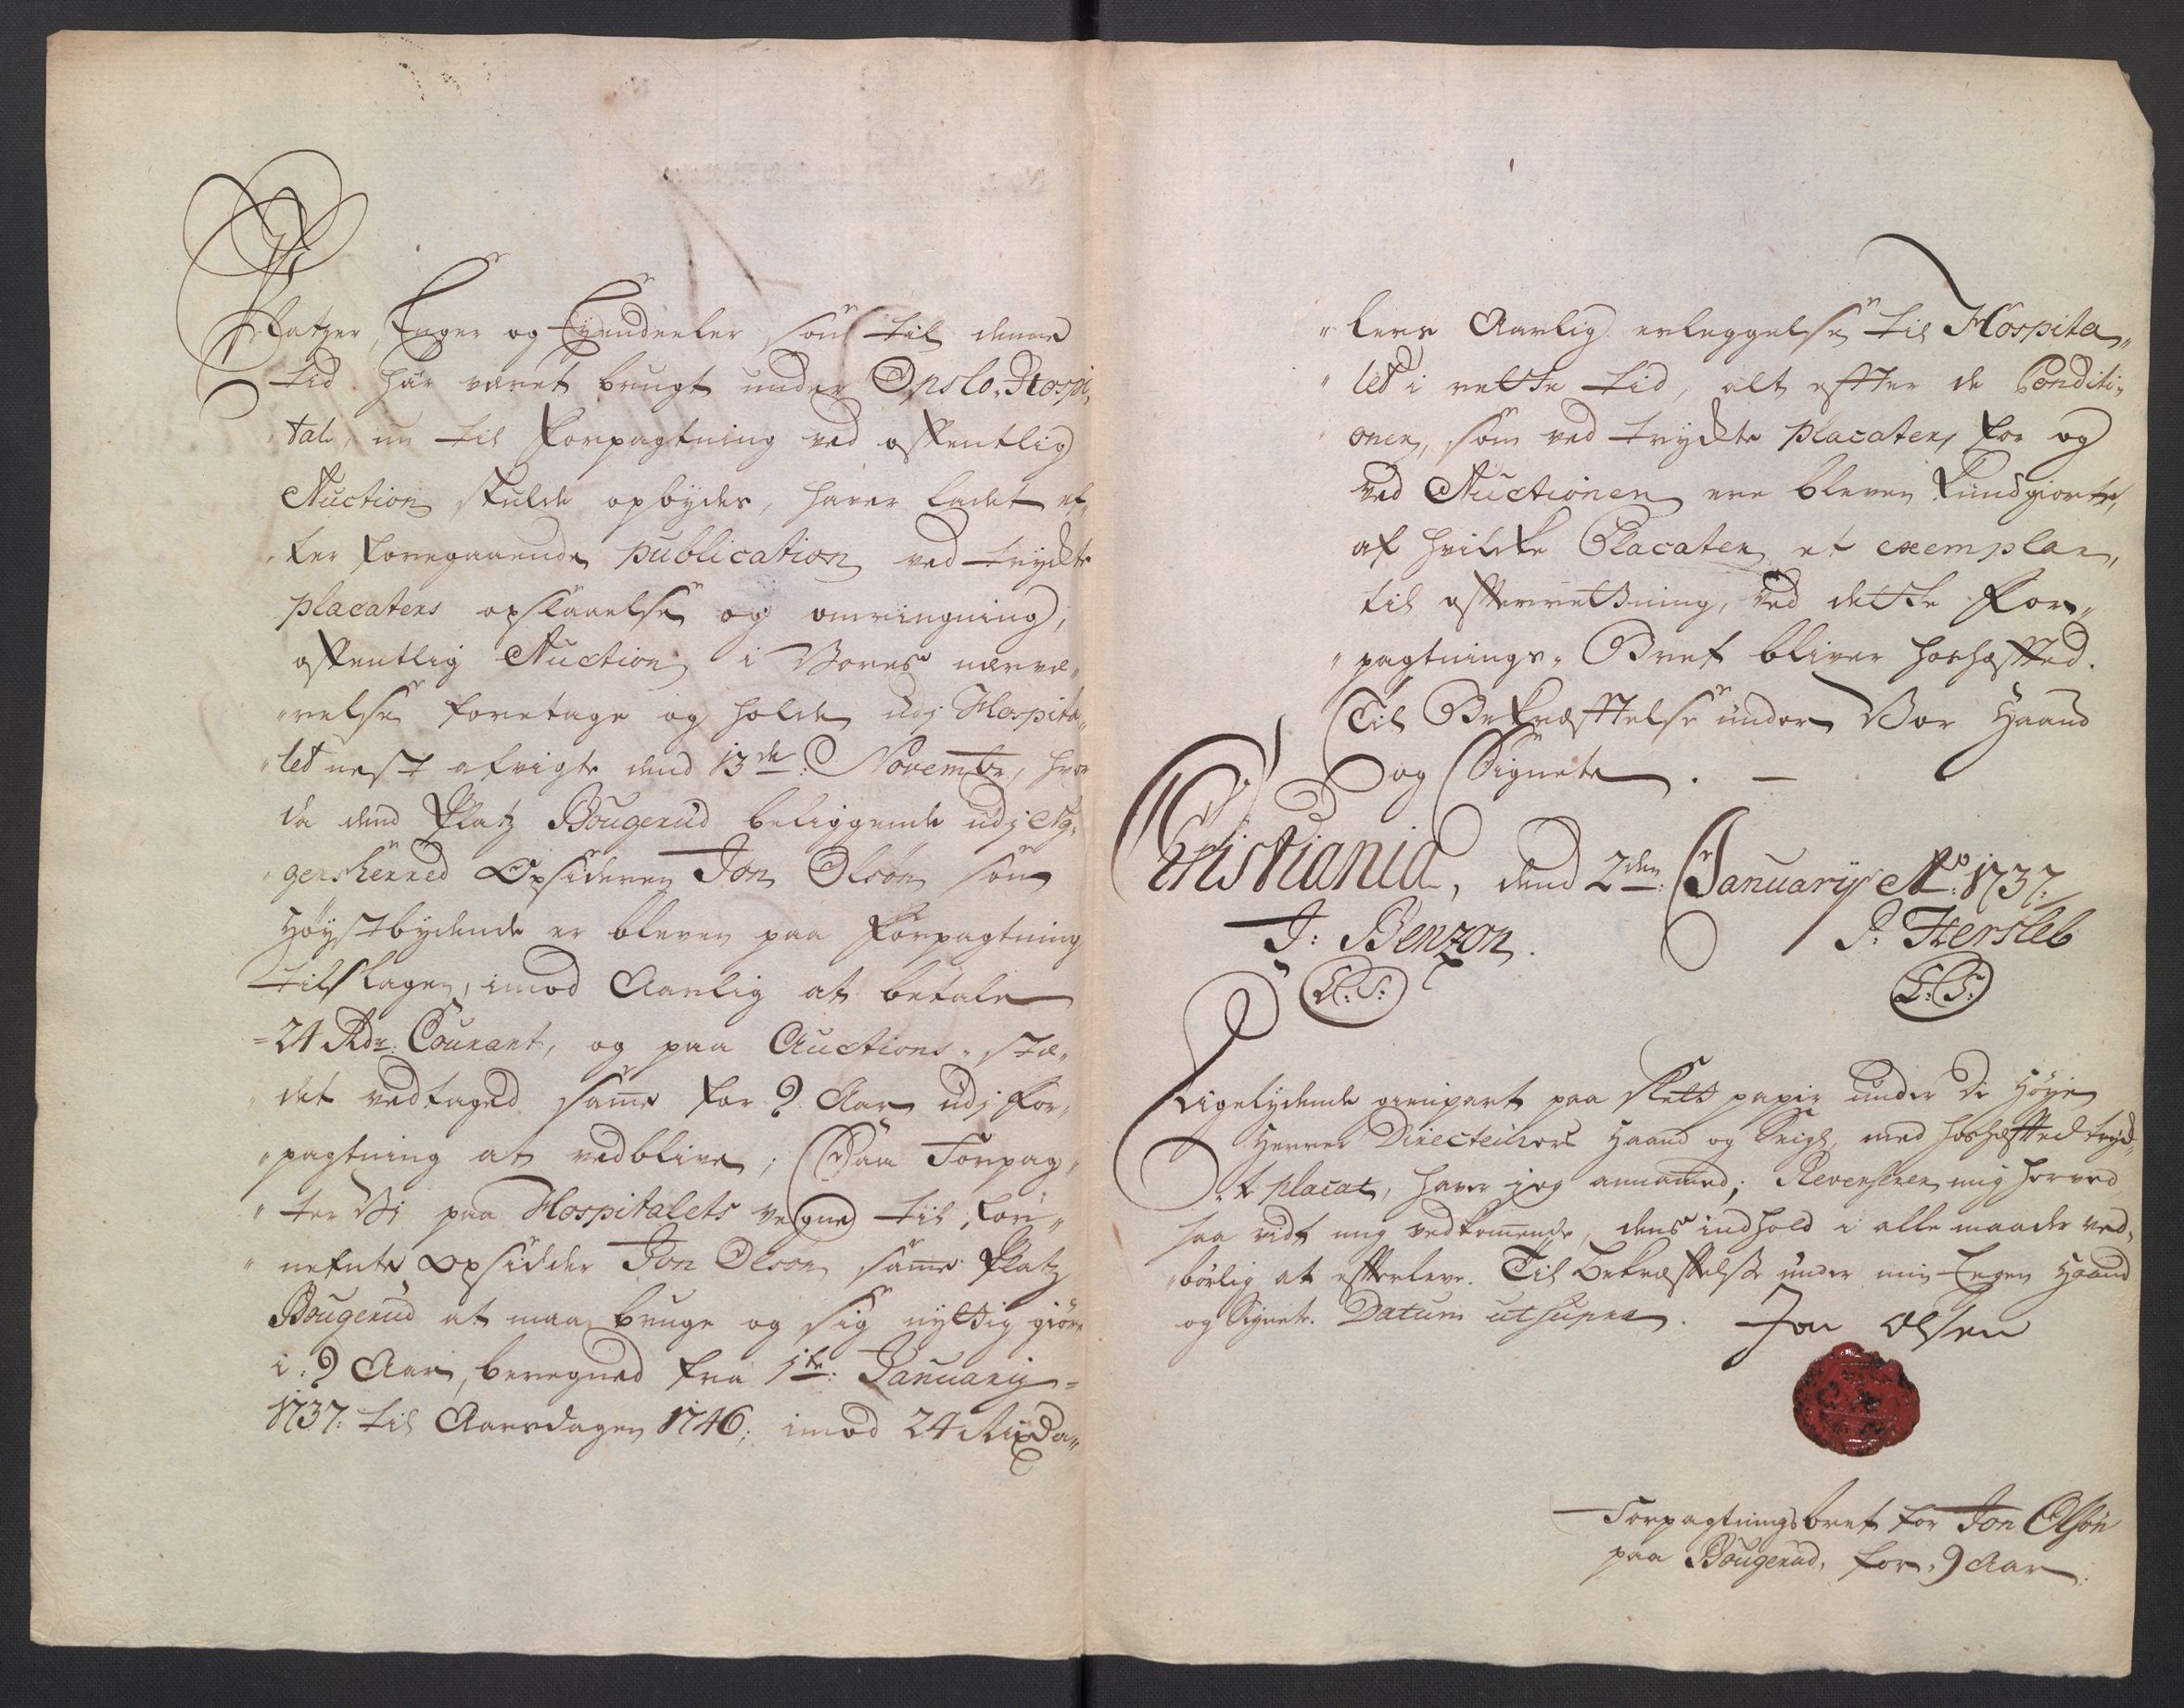 Platzer, Enger og Eyendeeler som til denne
tid har været brugt under Opslo-Hospi-
"tal, nu til Forpagtning ved offentlig
Auction skulde opbydes, haver ladet ef-
"ter foregaaende publication ved trykte
placaters opslaaelse og omringning,
offentlig Auction i Vores nærvæ"
"relse foretage og holde udj Hospita"
"let nest afvigte dend 13de: Novembr, hvor
da dend Platz Bougerud beliggende udj Ag-
"gersherred Opsideren Jon Olson som
Høystbydende er bleven paa Forpagtning
tilslagen, imod Aarlig at betale
=24 Rdr: Courant, og paa Auctions-stæ"
"det vedtaged samme for 9 Aar udj For"
"pagtning at vedblive; Saa Forpag"
"ter Vi paa Hospitalets vegne til for"
"nefnte Opsidder Jon Olson samme Platz
Bougerud at maa bruge og sig nyttig giøre
i: 9 Aar, beregned fra 1te: January=
1737: til Aarsdagen 1746; imod 24 Rixda"
"lers Aarlig erleggelse til Hospita"
"let i rette tid, alt efter de Conditi-
"oner, som ved trykte placater, for og
ved Auctionen ere bleven kundgiorte,
af hvilke Placater et exemplar,
til efterretning, ved dette For"
"pagtnings-Bref bliver hoshæfted.
Til Bekræftelse under Vor Haand
og Signete. —
Christiania, dend 2den: Januarij Ao: 1737:
J: Benzon. P: Hersleb
L:S: L:S:
Ligelydende gienpart paa slett papir under de Høye
Herrer Directeurers Haand og Seigl, med hoshæfted tryk-
"t placat, haver jeg annammed; Reverserer mig herved
saa vidt mig vedkommende, dens indhold i alle maader ved-
"børlig at efterleve. Til Bekræftelse under min Egen Haand
og Signete. Datum ut supra. Jon Olsen
Forpagtningsbref for Jon Olsøn
paa Bougerud, for 9 Aar.